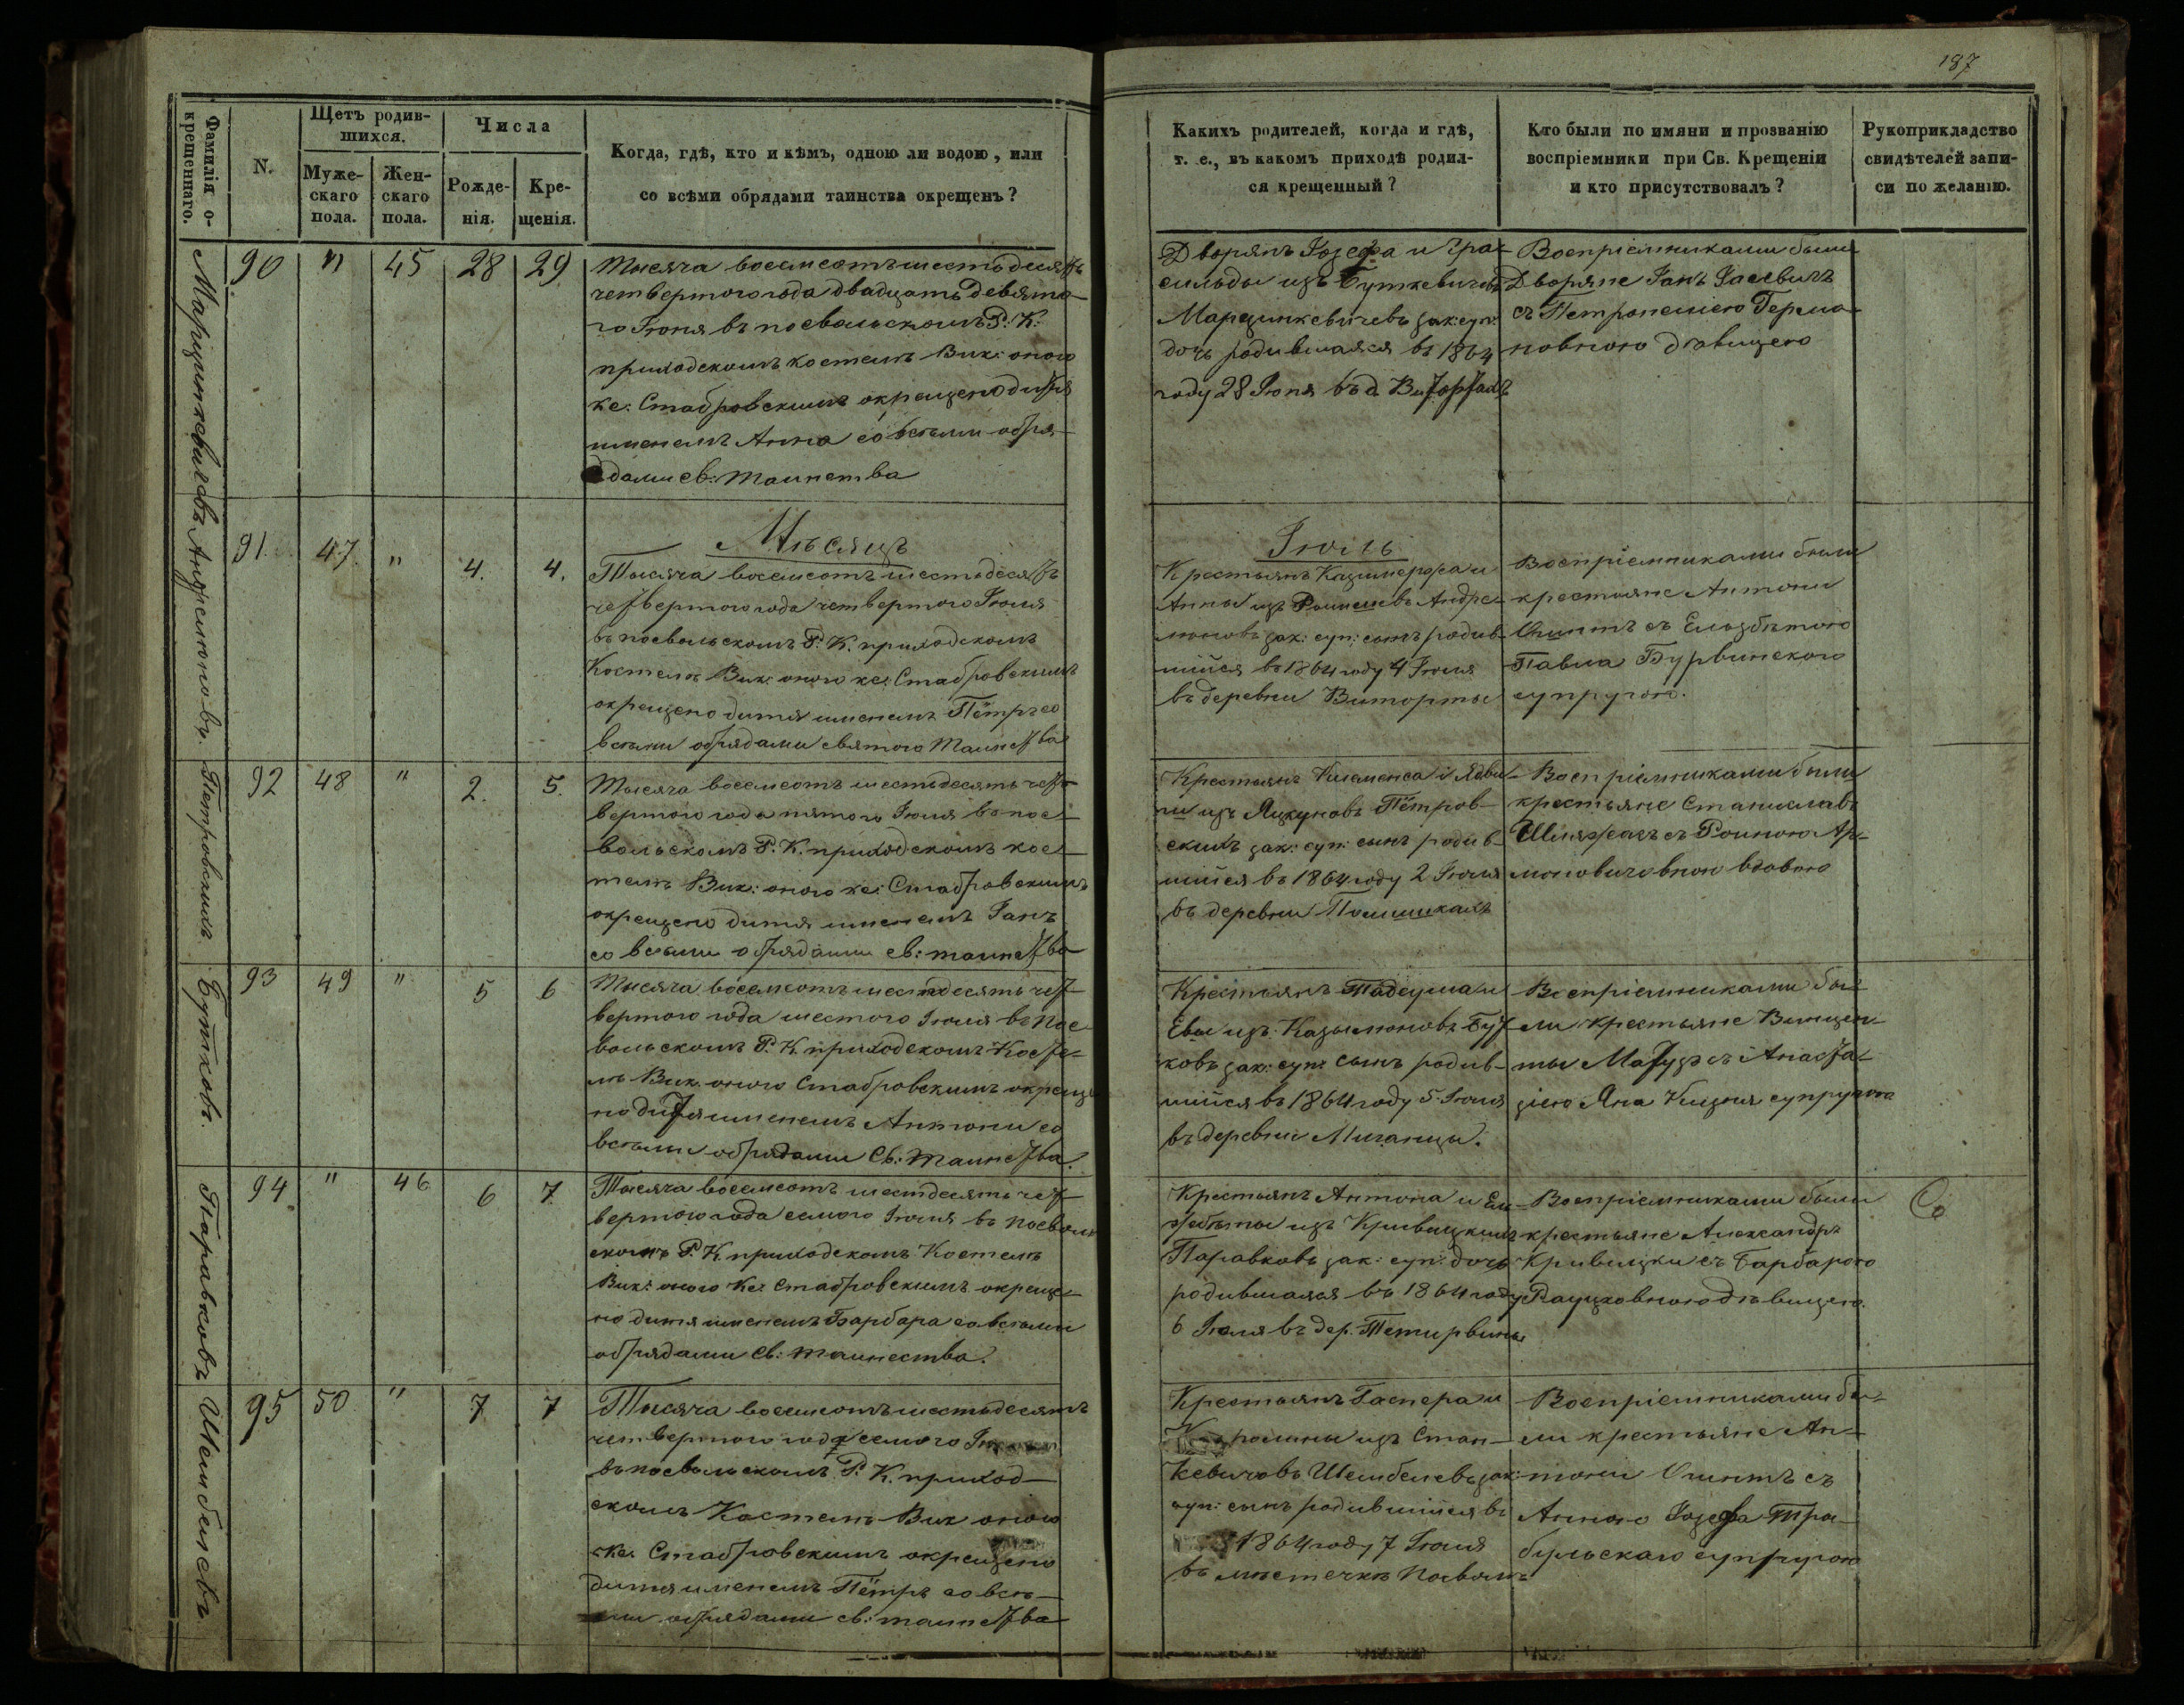 187
Фамилія о-
крещеннаго.
N.
Щетъ родив-
шихся.
Муже-
скаго
пола.
Жен-
скаго
пола.
Числа
Рожде-
нія.
Кре-
щенія.
Когда, гдѣ, кто и кѣмъ, одною ли водою, или
со всѣми обрядами таинства окрещенъ?
Какихъ родителей, когда и гдѣ,
т. е., въ какомъ приходѣ родил-
ся крещенный?
Кто были по имяни и прозванію
воспріемники при Св. Крещеніи
и кто присутствовалъ?
Рукоприкладство
свидѣтелей запи-
си по желанію.
Марцинкевичевъ
90 " 45 28 29
Тысяча восемсотъ шестьдесятъ
четвертого года двадцать девято-
го Іюня въ посвольскомъ Р. К.
приходскомъ костелѣ Вик: оного
кс: Стабровскимъ окрещено дитя
именемъ Анна со всѣми обря-
дами св: таинства
Дворянъ Іозефа и Гра-
сильды изъ Буткевичевъ
Марцинкевичевъ зак: суп:
дочь родившаяся въ 1864
году 28 Іюня въ д.
Воспріемниками были
Дворяне Іанъ
съ Петронелею Герма-
новною дѣвицею
Мѣсяцъ
Іюль
91. 47. " 4. 4.
Тысяча восемсотъ шестьдесятъ
четвертого года четвертого Іюля
въ посвольскомъ Р. К. приходскомъ
Костелѣ Вик: оного кс: Стабровскимъ
окрещено дитя именемъ Пётръ со
всѣми обрядами святого таинства
Крестьянъ Казимера и
Анны изъ Андре-
люновъ зак: суп: сынъ родив-
шійся въ 1864 году 4 Іюля
въ деревни Виторты
Воспріемниками были
крестьяне Антони
съ Ельзбѣтою
Павла Бурвинского
супругою.
Петровскихъ
92 48 " 2. 5.
Тысяча восемсотъ шестьдесятъ чет-
вертого года пятого Іюля въ пос-
вольскомъ Р. К. приходскомъ кос-
телѣ Вик: оного кс: Стабровскимъ
окрещено дитя именемъ Іанъ
со всѣми обрядами св: таинства
Крестьянъ Клеменса і Ядви-
ги изъ Яцкуновъ Пётров-
скихъ зак: суп: сынъ родив-
шійся въ 1864 году 2 Іюля
въ деревни
Воспріемниками были
крестьяне Станиславъ
съ Розиною
вдовою
Бутковъ.
93 49 " 5 6
Тысяча восемсотъ шестдесятъ чет-
вертого года шестого Іюля въ Пос-
вольскомъ Р. К. приходскомъ Косте-
лѣ Вик. оного Стабровскимъ окреще
но дитя именемъ Антони со
всѣми обрядами Св: таинства.
Крестьянъ Тадеуша и
Евы изъ Казылюновъ Бут-
ковъ зак: суп: сынъ родив-
шійся въ 1864 году 5 Іюля
въ деревни Миганцы.
Воспріемниками бы-
ли крестьяне Винцен-
ты съ Анаста-
зіею Яна супругою
Паравковъ
94 " 46 6 7
Тысяча восемсотъ шестдесятъ чет-
вертого года семого Іюля въ посволь
скомъ Р. К. приходскомъ Костелѣ
Вик: оного Кс: Стабровскимъ окреще-
но дитя именемъ Барбара со всѣми
обрядами Св: таинства.
Крестьянъ Антона и Ел-
жбѣты изъ Кривицкихъ
Паравковъ зак: суп: дочь
родившаяся въ 1864 году
6 Іюля въ дер. Тетирвины
Воспріемниками были
крестьяне Александръ
Кривицки съ Барбарою
дѣвицею.
Шембелевъ
95 50 " 7 7
Тысяча восемсотъ шестьдесятъ
четвертого года семого
въ посвольскомъ Р. К. приход-
скомъ Костелѣ Вик оного
Кс: Стабровскимъ окрещено
дитя именемъ Пётръ со всѣ-
ми обрядами св: таинства
Крестьянъ Гаспера и
изъ Стан-
кевичовъ Шембелевъ зак:
суп: сынъ родившійся въ
1864 году 7 Іюля
въ мѣстечкѣ Посволѣ
Воспріемниками бы-
ли крестьяне Ан-
тони съ
Анною Іозефа
супругою